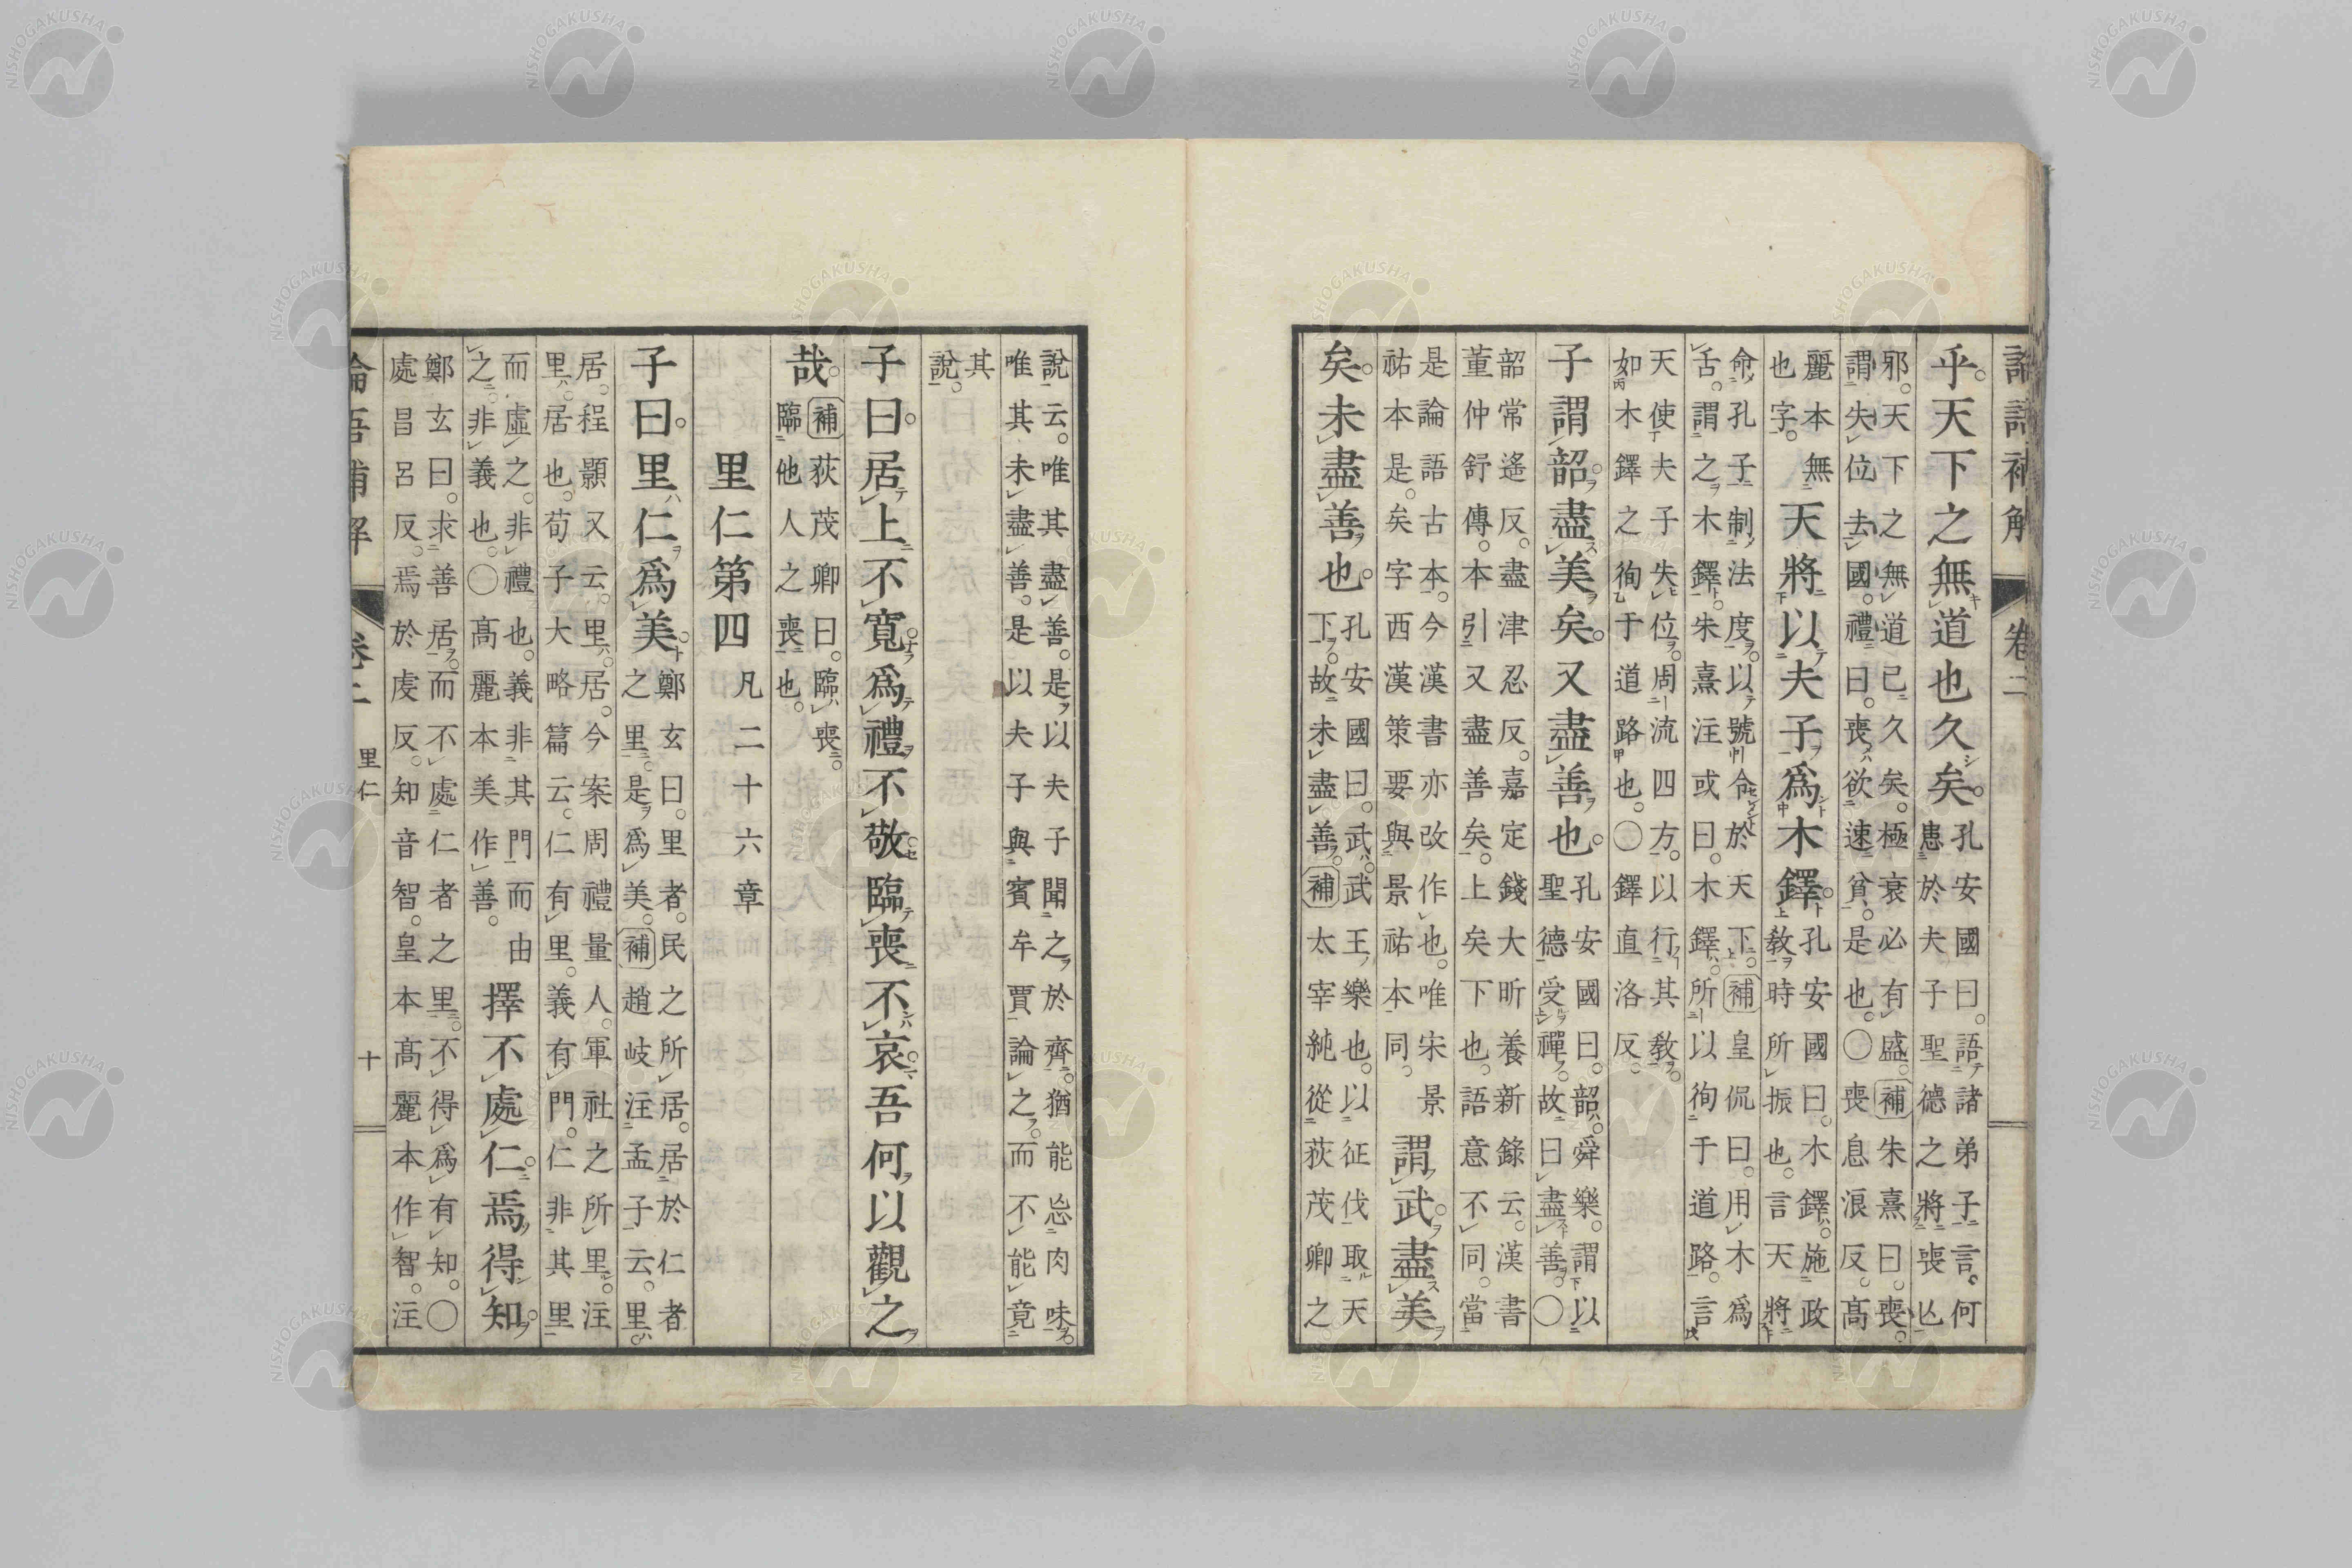 論語補解 卷二
乎。天下之無道也久矣。
孔安國曰。語諸弟子言。何
患於夫子聖德之將喪亡
邪。天下之無道已久矣。極衰必有盛。補朱熹曰。喪。
謂失位去國。禮曰。喪欲速貧。是也。〇喪息浪反。髙
麗本無
也字。
天將以夫子爲木鐸。
孔安國曰。木鐸。施政
教時所振也。言天將
命孔子制法度。以號令於天下。補皇侃曰。用木爲
舌。謂之木鐸。朱熹注或曰。木鐸。所以徇于道路。言
天使夫子失位。周流四方。以行其教。
如木鐸之徇于道路也。〇鐸直洛反。
子謂韶。盡美矣。又盡善也。
孔安國曰。韶。舜樂。謂以
聖德受禪。故曰盡善。〇
韶常遙反。盡津忍反。嘉定錢大昕養新錄云。漢書
董仲舒傳。本引又盡善矣。上矣下也。語意不同。當
是論語古本。今漢書亦改作也。唯宋景
祐本是。矣字西漢策要與景祐本同。
謂武。盡美
矣。未盡善也。
孔安國曰。武。武王樂也。以征伐取天
下。故未盡善。補太宰純從荻茂卿之
說云。唯其盡善。是以夫子聞之於齊。猶能忘肉味。
唯其未盡善。是以夫子與賓牟賈論之。而不能竟
其
說。
子曰。居上不寬。爲禮不敬。臨喪不哀。吾何以觀之
哉。
補荻茂卿曰。臨喪。
臨他人之喪也。
里仁第四 凡二十六章
子曰。里仁爲美。
鄭玄曰。里者。民之所居。居於仁者
之里。是爲美。補趙岐注孟子云。里。
居。程顥又云。里。居。今案周禮量人。軍社之所里。注
里。居也。荀子大略篇云。仁有里。義有門。仁非其里
而虛之。非禮也。義非其門而由
之。非義也。〇髙麗本美作善。
擇不處仁。焉得知。
鄭玄曰。求善居。而不處仁者之里。不得爲有知。〇
處昌呂反。焉於虔反。知音智。皇本髙麗本作智。注
論語補解 卷二 里仁 十